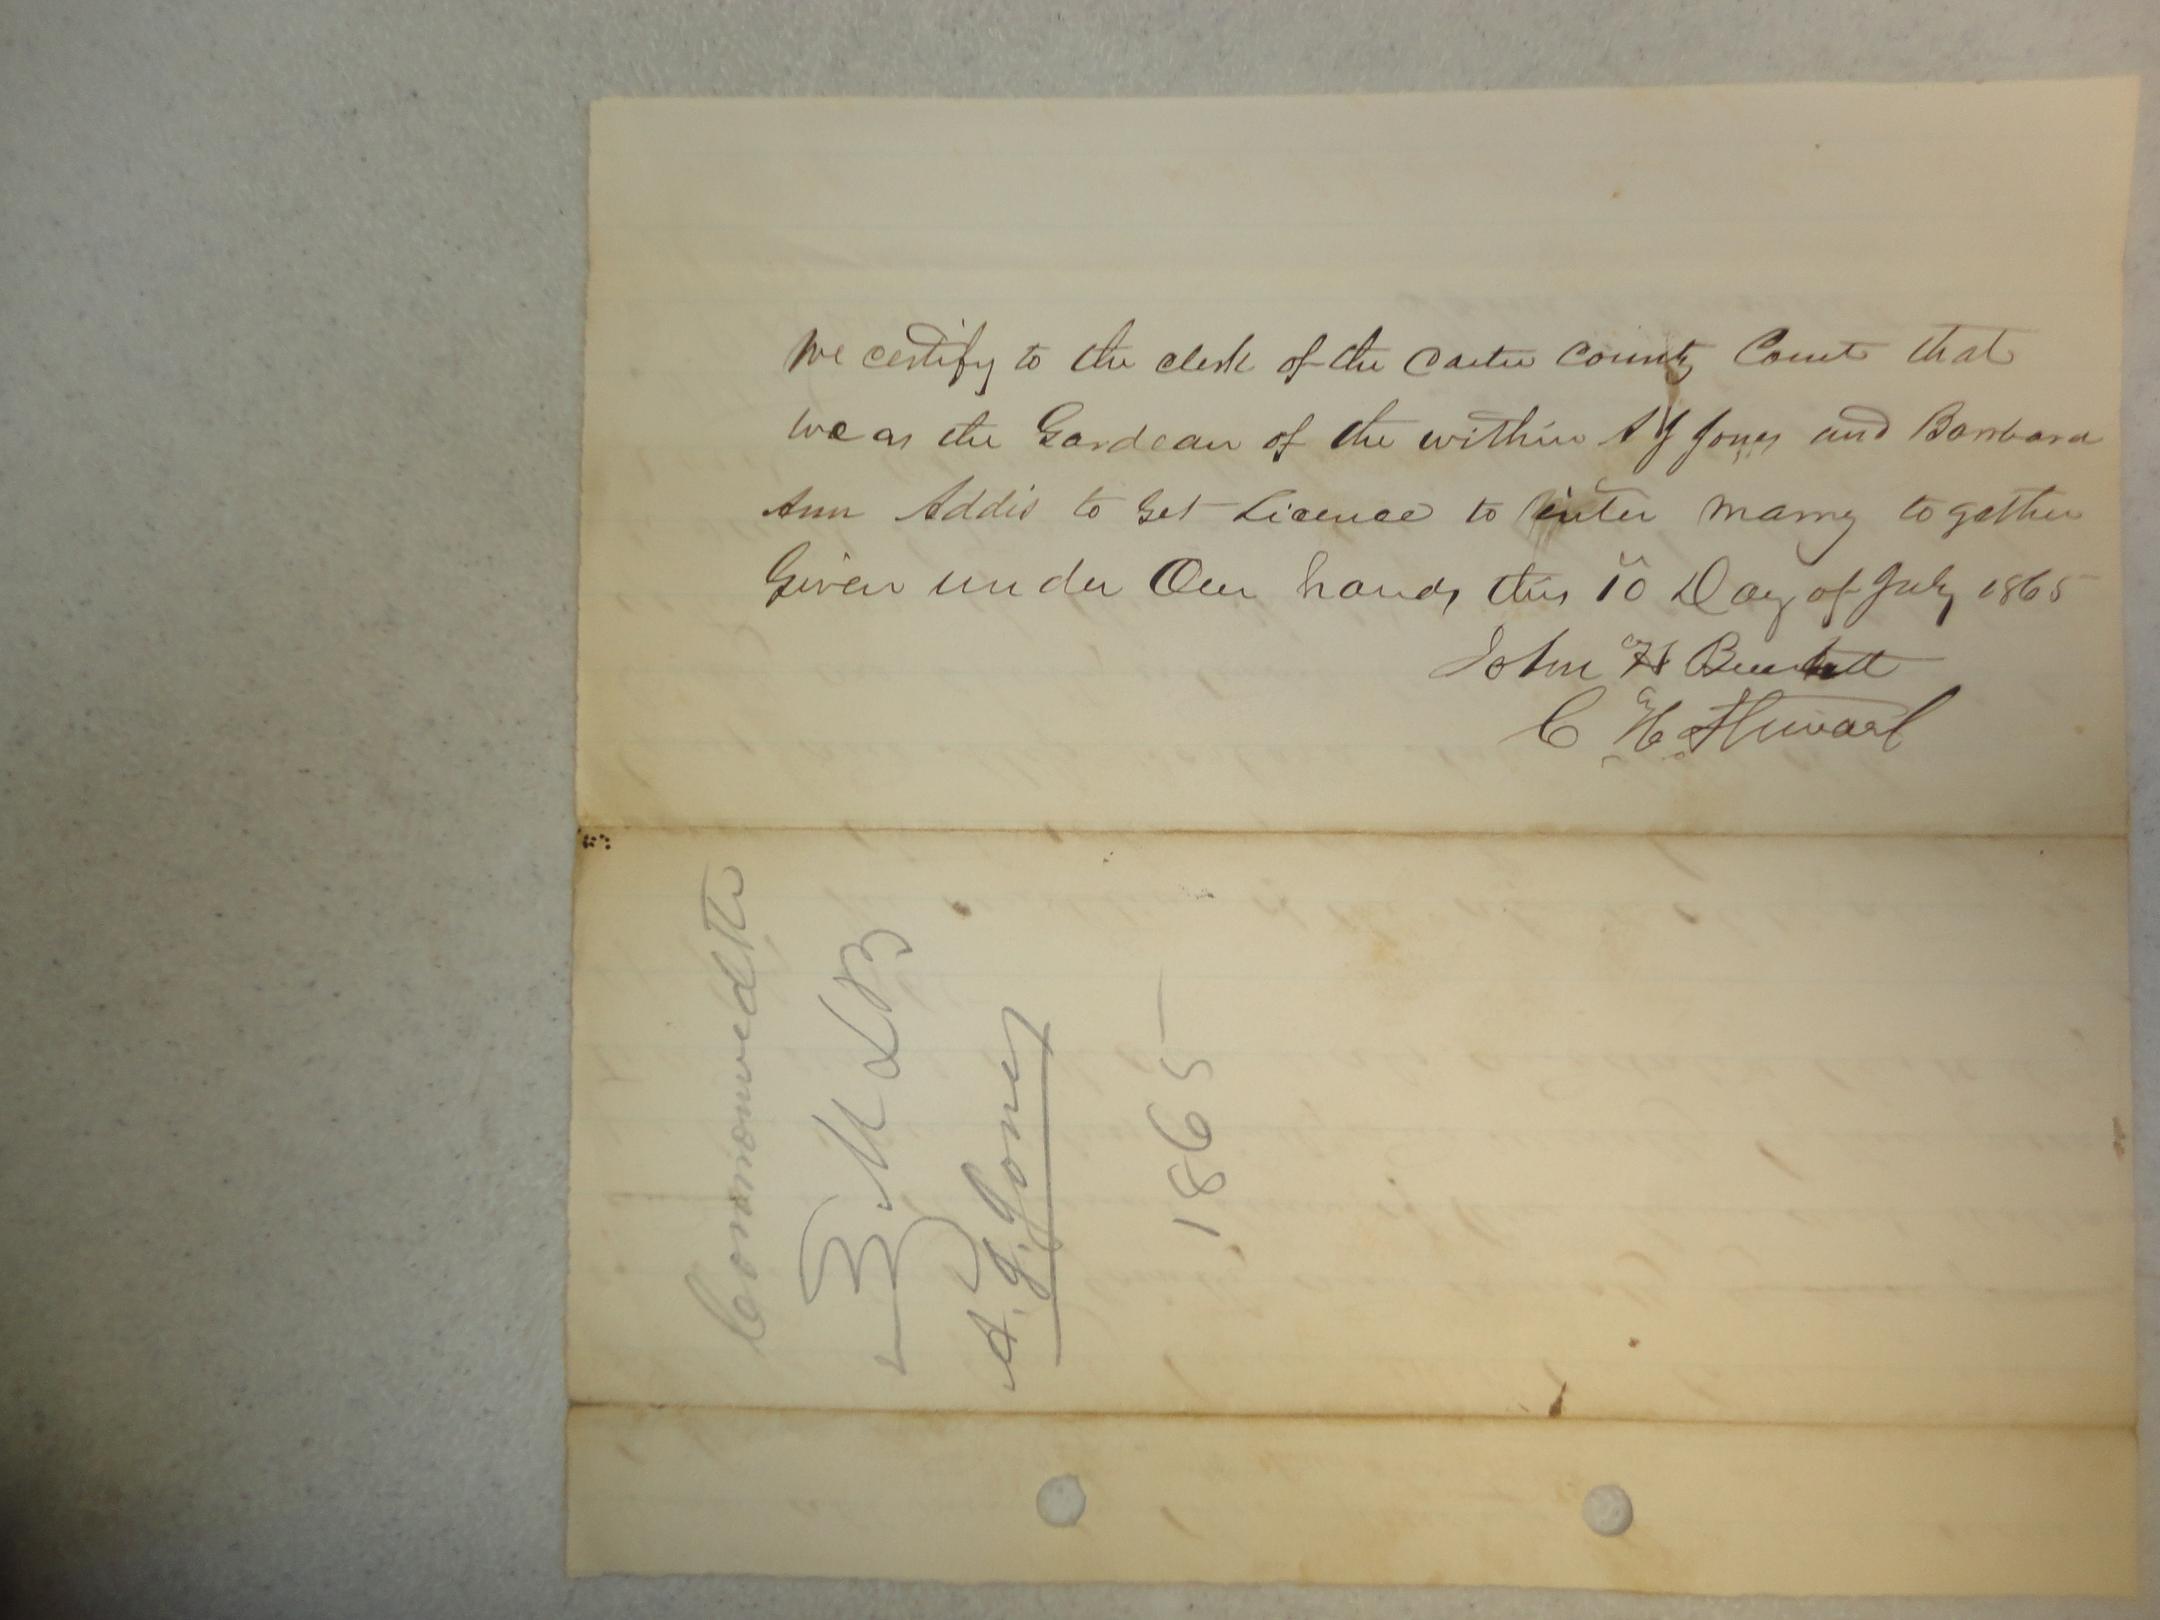 We certify to the clerk of the Carter County Court that
we as the Gardean of the within A J Jones and Barbara
Ann Addis to Get Licence to inter marry to gather
Given under Our hands this 10 Day of July 1865
John H
C H Stuwart
Commonwelth
M L B
A. J. Jones
1865